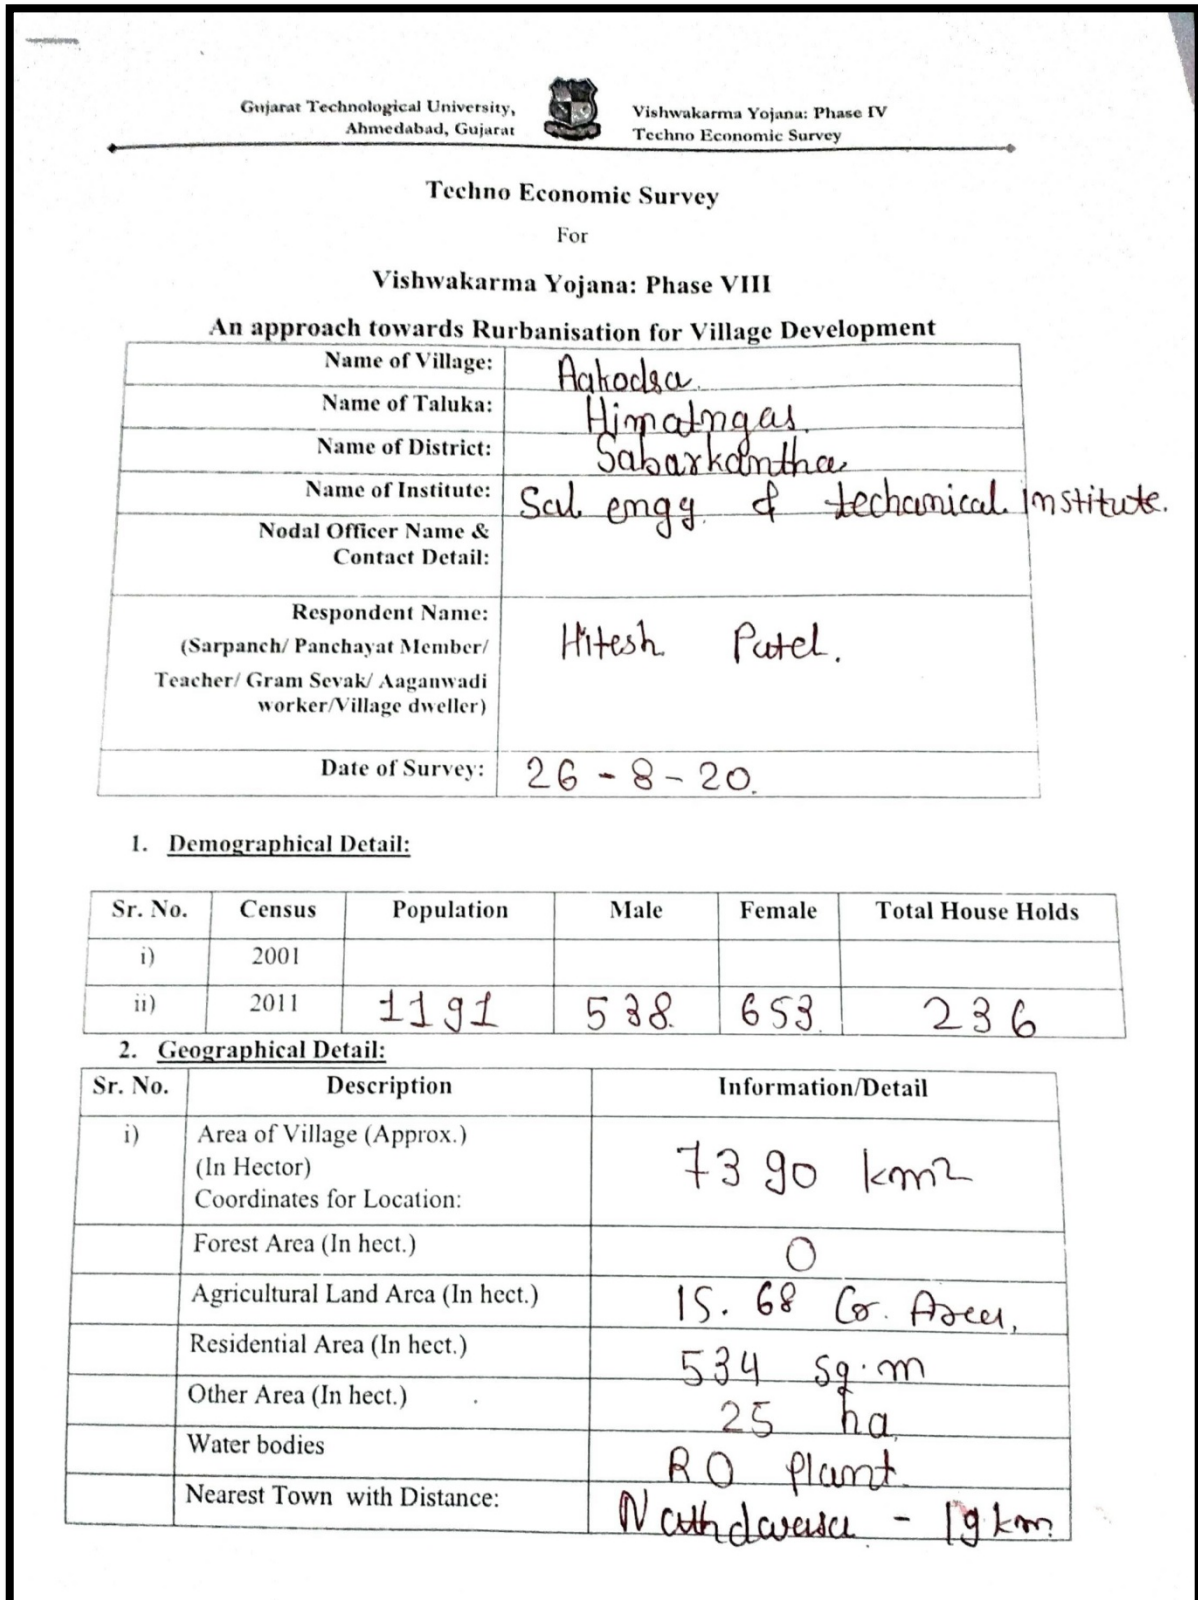 Gujarat Technological University,
Ahmedabad, Gujarat
Vishwakarma Yojana: Phase IV
Techno Economic Survey
Techno Economic Survey
For
Vishwakarma Yojana: Phase VIII
An approach towards Rurbanisation for Village Development
Name of Village: Aakodsa.
Name of Taluka: Himatngas.
Name of District: Sabarkantha
Name of Institute: Sal engg. & techanical institute.
Nodal Officer Name &
Contact Detail:
Respondent Name: Hitesh Patel.
(Sarpanch/ Panchayat Member/
Teacher/ Gram Sevak/ Aaganwadi
worker/Village dweller)
Date of Survey: 26 - 8 - 20.
1. Demographical Detail:
Sr. No. Census Population Male Female Total House Holds
i) 2001
ii) 2011 1191 538 653 236
2. Geographical Detail:
Sr. No. Description Information/Detail
i) Area of Village (Approx.)
(In Hector) 7390 km2
Coordinates for Location:
Forest Area (In hect.) 0
Agricultural Land Area (In hect.) 15.68
Residential Area (In hect.) 534 sq.m
Other Area (In hect.) 25 ha.
Water bodies RO plant.
Nearest Town with Distance: - 19 km.